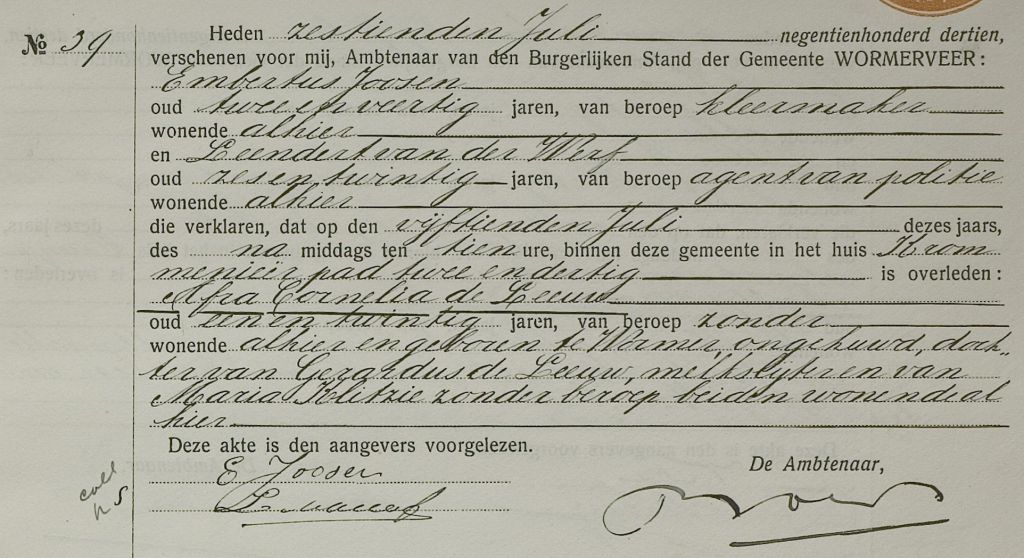 № 39 Heden zestienden Juli negentienhonderd dertien,
verschenen voor mij, Ambtenaar van den Burgerlijken Stand der Gemeente WORMERVEER:
Embertus Joosen
oud twee en veertig jaren, van beroep kleermaker
wonende alhier
en Leendert van der Werf
oud zes en twintig jaren, van beroep agent van politie
wonende alhier
die verklaren, dat op den vijftienden Juli dezes jaars,
des na middags ten tien ure, binnen deze gemeente in het huis Krom
menieër pad twee en dertig is overleden:
Afra Cornelia de Leeuw
oud een en twintig jaren, van beroep zonder
wonende alhier en geboren te Wormer, ongehuwd, doch-
ter van Gerardus de Leeuw, melkslyter en van
Maria Kletzie zonder beroep beiden wonende al
hier
Deze akte is den aangevers voorgelezen.
E Joosen De Ambtenaar,
coll